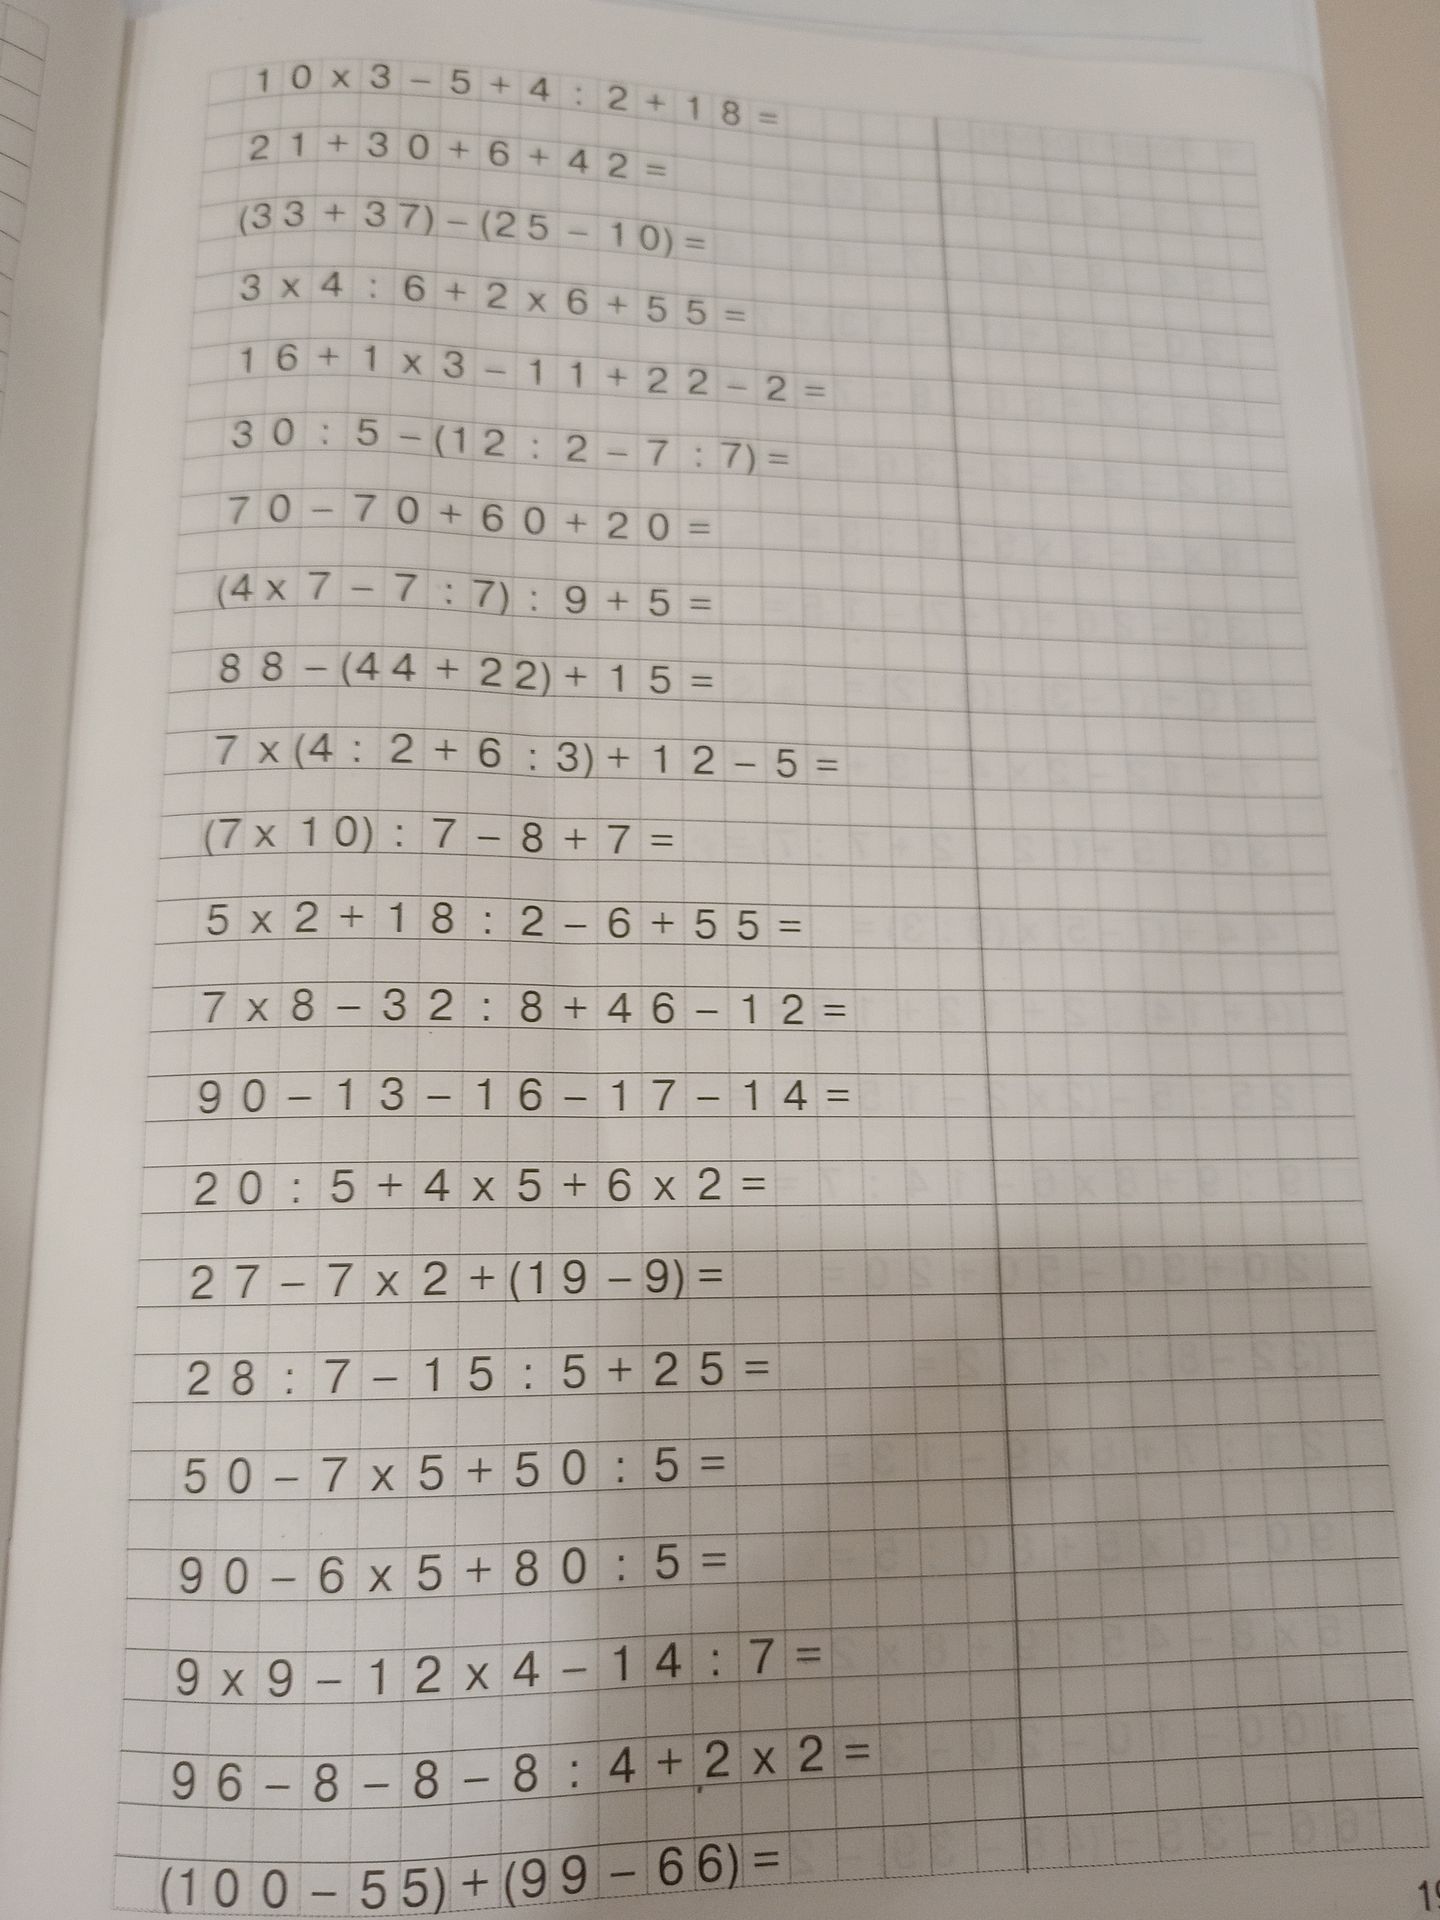 10x3-5+4:2+18=
21+30+6+42=
(33+37)-(25-10)=
3x4:6+2x6+55=
16+1x3-11+22-2=
30:5-(12:2-7:7)=
70-70+60+20=
(4x7-7:7):9+5=
88-(44+22)+15=
7x(4:2+6:3)+12-5=
(7x10):7-8+7=
5x2+18:2-6+55=
7x8-32:8+46-12=
90-13-16-17-14=
20:5+4x5+6x2=
27-7x2+(19-9)=
28:7-15:5+25=
50-7x5+50:5=
90-6x5+80:5=
9x9-12x4-14:7=
96-8-8-8:4+2x2=
(100-55)+(99-66)=